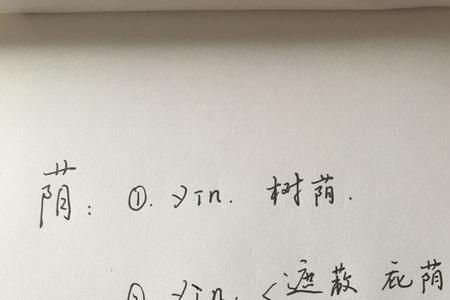 荫: ①. yīn. 树荫.
②. yìn. <遮蔽 庇荫